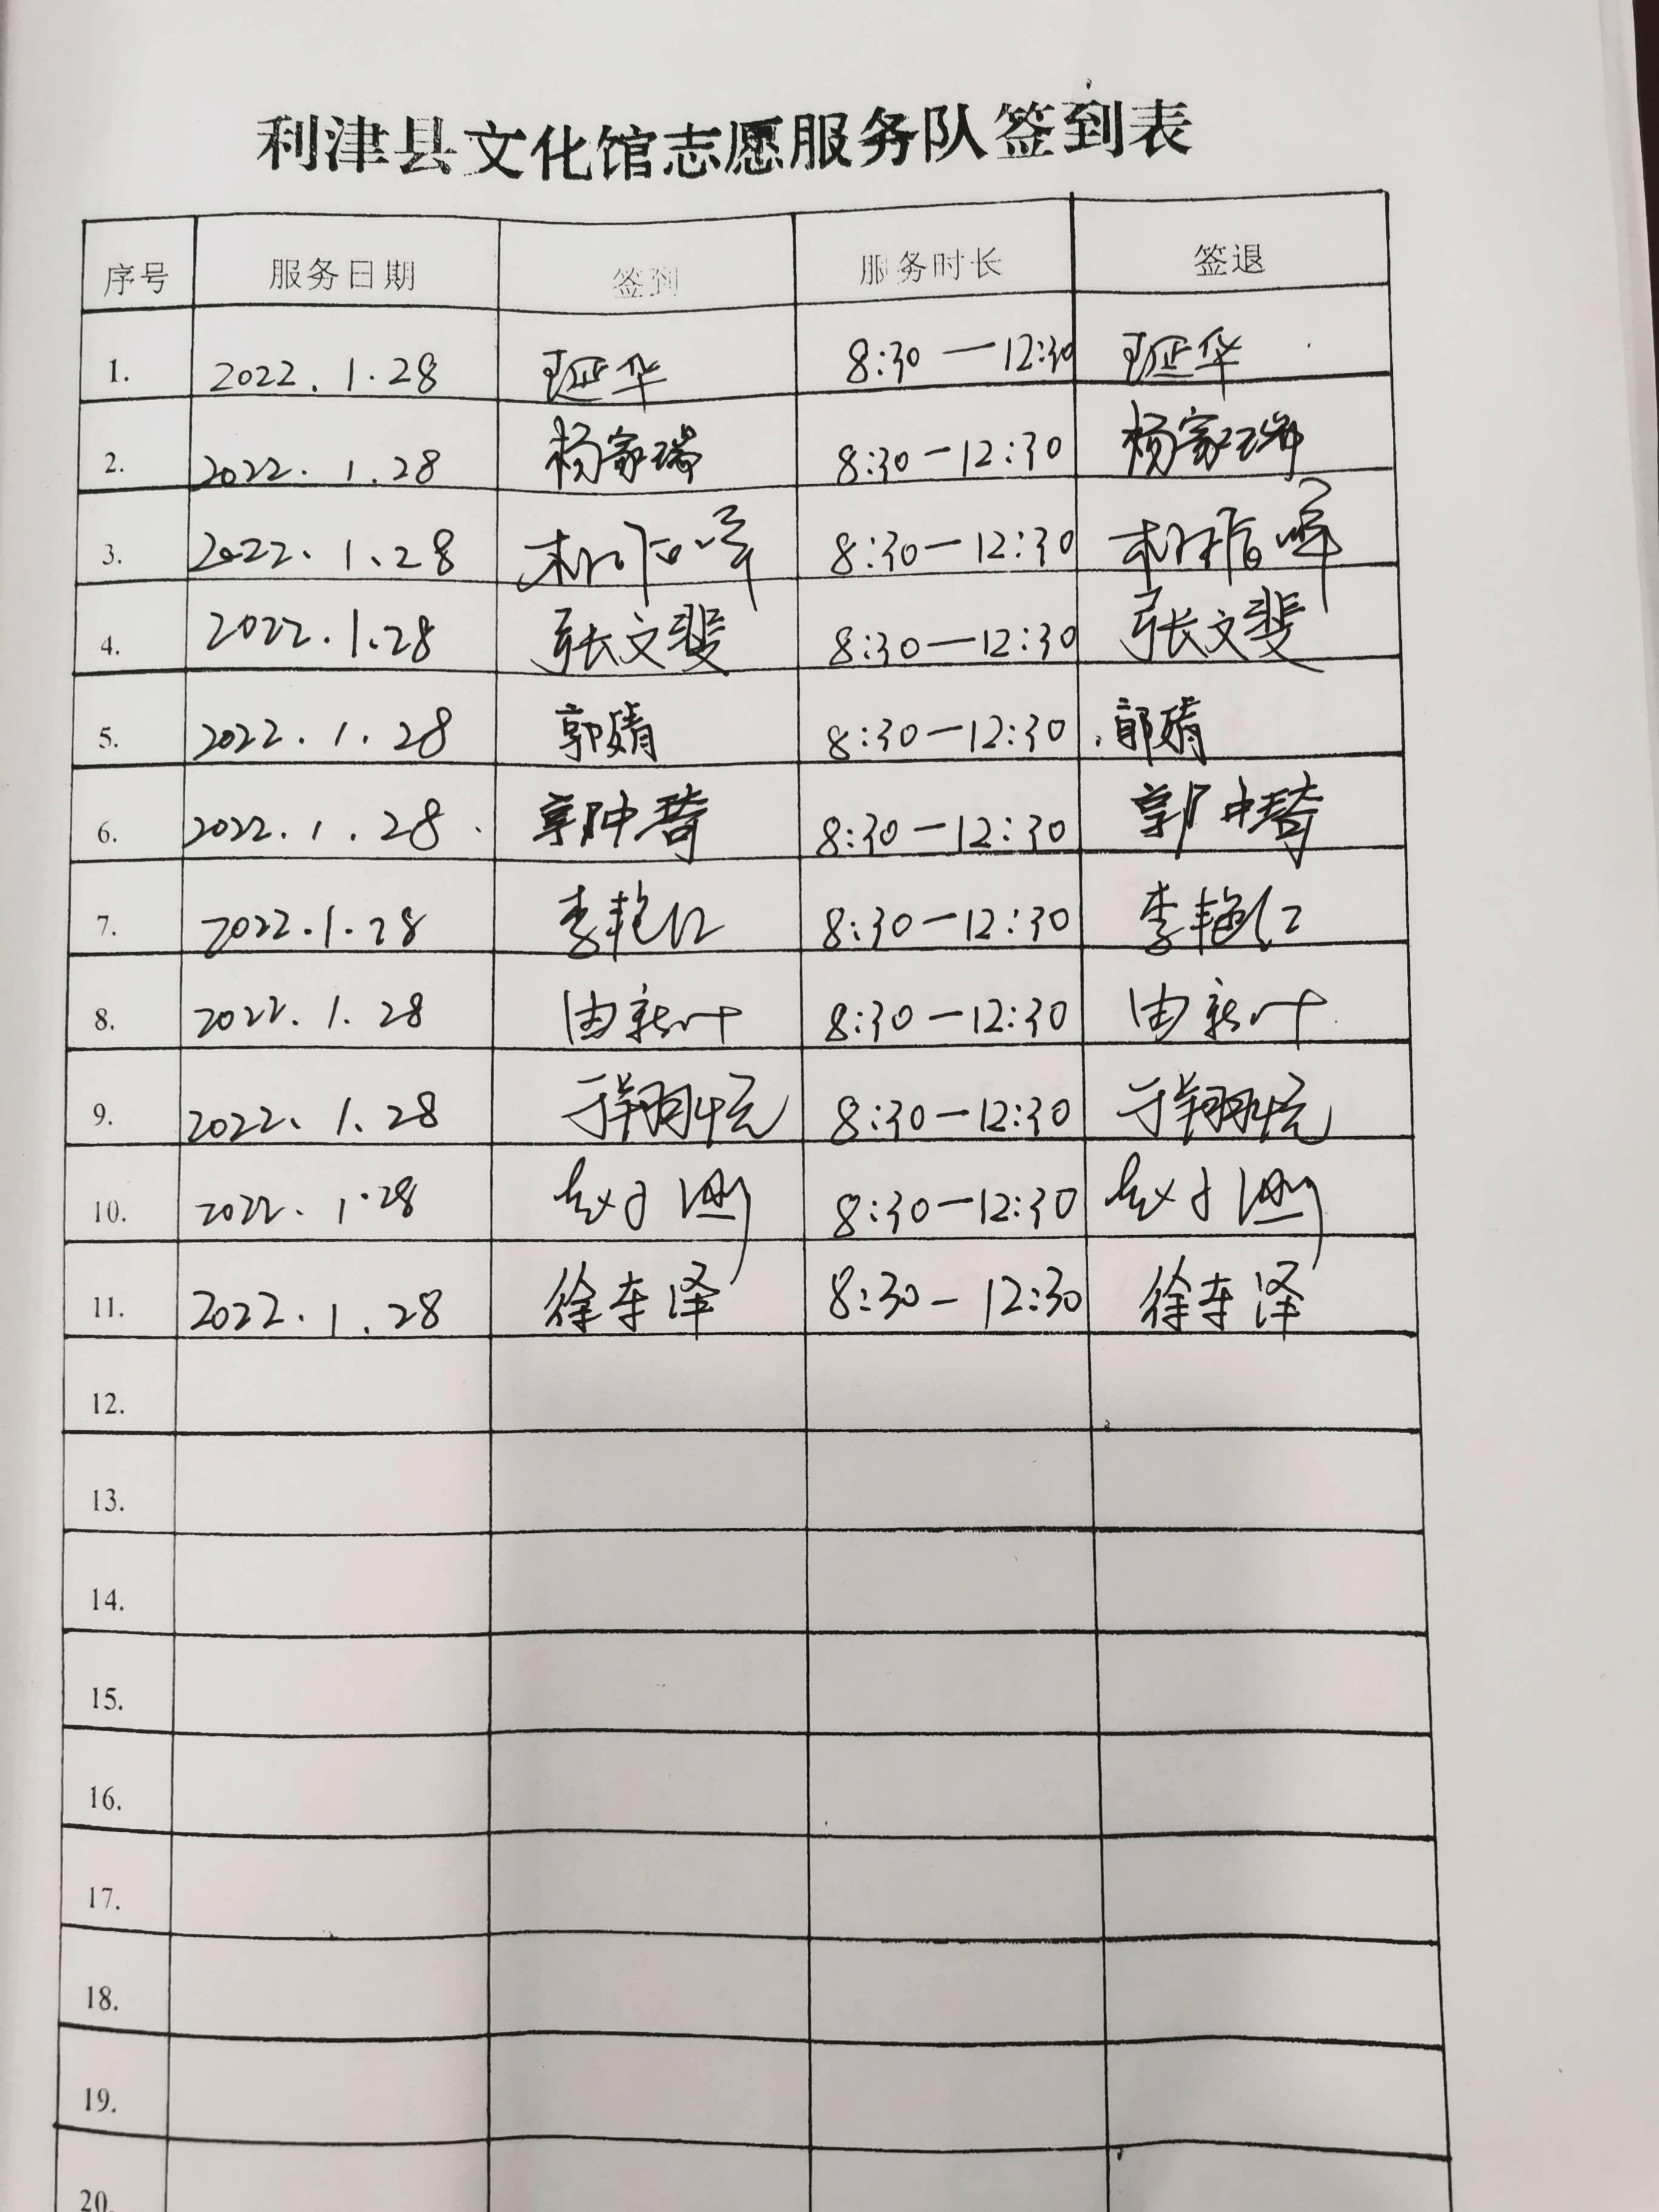 利津县文化馆志愿服务队签到表
序号 服务日期 签到 服务时长 签退
1. 2022.1.28 王延华 8:30—12:30 王延华
2. 2022.1.28 杨家瑞 8:30—12:30 杨家瑞
3. 2022.1.28 8:30—12:30
4. 2022.1.28 张文斐 8:30—12:30 张文斐
5. 2022.1.28 郭婧 8:30—12:30 郭婧
6. 2022.1.28 郭中琦 8:30—12:30 郭中琦
7. 2022.1.28 李艳红 8:30—12:30 李艳红
8. 2022.1.28 由新叶 8:30—12:30 由新叶
9. 2022.1.28 8:30—12:30
10. 2022.1.28 赵 8:30—12:30 赵
11. 2022.1.28 徐 泽 8:30—12:30 徐 泽
12.
13.
14.
15.
16.
17.
18.
19.
20.